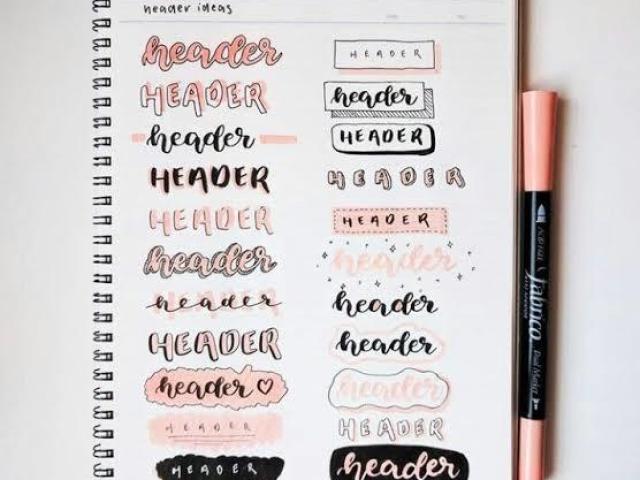 header ideas
header
HEADER
header
HEADER
HEADER
header
header
HEADER
header ♡
HEADER
HEADER
HEADER
header
HEADER
HEADER
HEADER
header
header
header
header
HEADER
header
Fabrica
Dual Marker